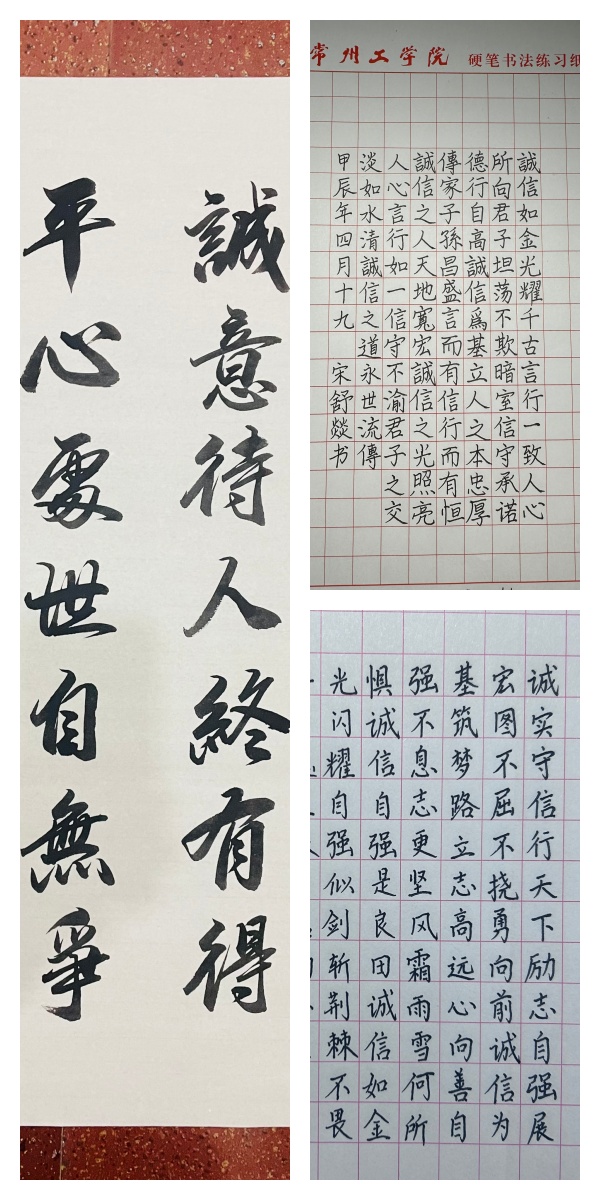 誠意待人終有得
平心處世自無爭
常州工学院 硬笔书法练习纸
誠信如金光耀千古言行一致人心
所向君子坦荡不欺暗室信守承诺
德行自高誠信爲基立人之本忠厚
傳家子孫昌盛言而有信行而有恒
誠信之人天地寬宏誠信之光照亮
人心言行如一信守不渝君子之交
淡如水清誠信之道永世流傳
甲辰年四月十九 宋舒燚书
诚实守信行天下励志自强展
宏图不屈不挠勇向前诚信为
基筑梦路立志高远心向善自
强不息志更坚风霜雨雪何所
惧诚信自强是良田诚信如金
光闪耀自强似剑斩荆棘不畏